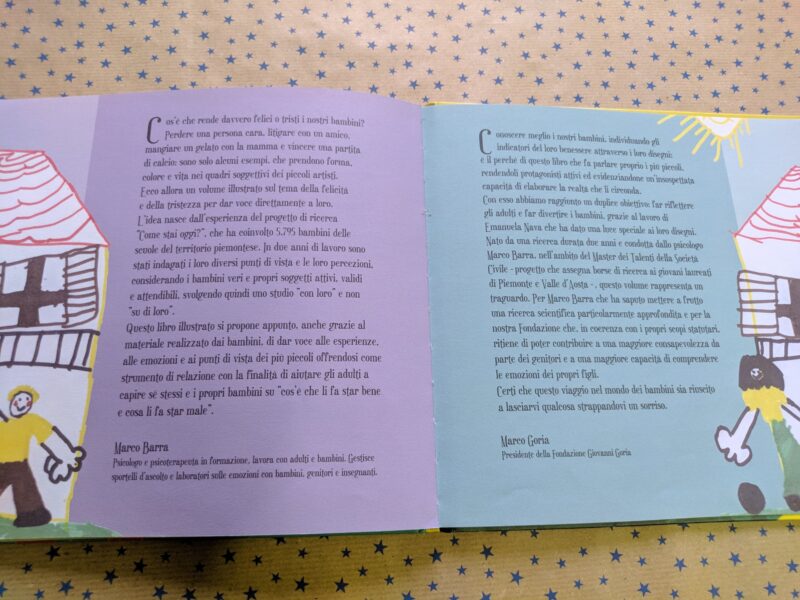 Cos'è che rende davvero felici o tristi i nostri bambini?
Perdere una persona cara, litigare con un amico,
mangiare un gelato con la mamma e vincere una partita
di calcio: sono solo alcuni esempi, che prendono forma,
colore e vita nei quadri soggettivi dei piccoli artisti.
Ecco allora un volume illustrato sul tema della felicità
e della tristezza per dar voce direttamente a loro.
L'idea nasce dall'esperienza del progetto di ricerca
"Come stai oggi?", che ha coinvolto 5.795 bambini delle
scuole del territorio piemontese. In due anni di lavoro sono
stati indagati i loro diversi punti di vista e le loro percezioni,
considerando i bambini veri e propri soggetti attivi, validi
e attendibili, svolgendo quindi uno studio "con loro" e non
"su di loro".
Questo libro illustrato si propone appunto, anche grazie al
materiale realizzato dai bambini, di dar voce alle esperienze,
alle emozioni e ai punti di vista dei più piccoli offrendosi come
strumento di relazione con la finalità di aiutare gli adulti a
capire se stessi e i propri bambini su "cos'è che li fa star bene
e cosa li fa star male".
Marco Barra
Psicologo e psicoterapeuta in formazione, lavora con adulti e bambini. Gestisce
sportelli d'ascolto e laboratori sulle emozioni con bambini, genitori e insegnanti.
Conoscere meglio i nostri bambini, individuando gli
indicatori del loro benessere attraverso i loro disegni:
è il perché di questo libro che fa parlare proprio i più piccoli,
rendendoli protagonisti attivi ed evidenziandone un'insospettata
capacità di elaborare la realtà che li circonda.
Con esso abbiamo raggiunto un duplice obiettivo: far riflettere
gli adulti e far divertire i bambini, grazie al lavoro di
Emanuela Nava che ha dato una luce speciale ai loro disegni.
Nato da una ricerca durata due anni e condotta dallo psicologo
Marco Barra, nell'ambito del Master dei Talenti della Società
Civile - progetto che assegna borse di ricerca ai giovani laureati
di Piemonte e Valle d'Aosta -, questo volume rappresenta un
traguardo. Per Marco Barra che ha saputo mettere a frutto
una ricerca scientifica particolarmente approfondita e per la
nostra Fondazione che, in coerenza con i propri scopi statutari,
ritiene di poter contribuire a una maggiore consapevolezza da
parte dei genitori e a una maggiore capacità di comprendere
le emozioni dei propri figli.
Certi che questo viaggio nel mondo dei bambini sia riuscito
a lasciarvi qualcosa strappandovi un sorriso.
Marco Goria
Presidente della Fondazione Giovanni Goria